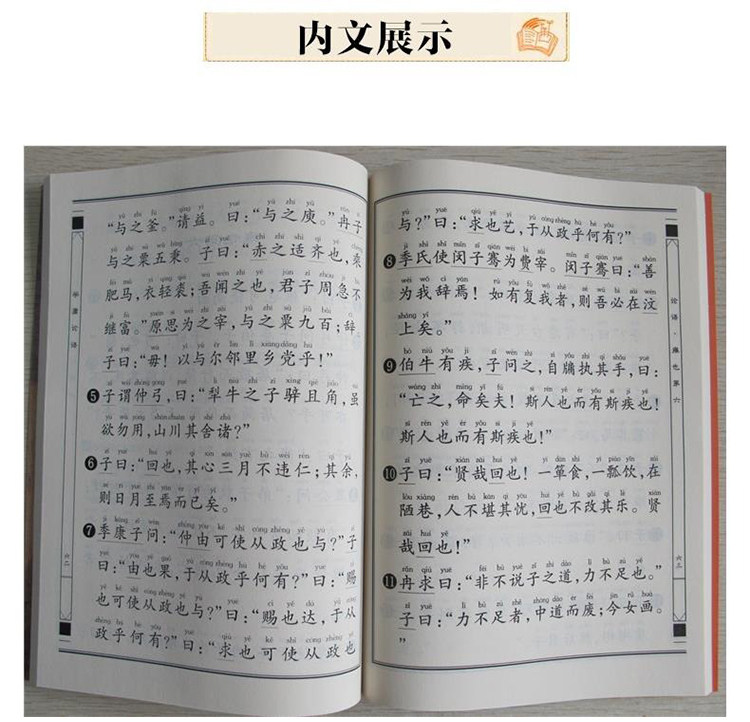 内文展示
与之釜。”请益。曰：“与之庾。”冉子
与之粟五秉。子曰：“赤之适齐也，乘
肥马，衣轻裘；吾闻之也，君子周急不
继富。”原思为之宰，与之粟九百；辞，
子曰：“毋！以与尔邻里乡党乎！”
❺子谓仲弓，曰：“犁牛之子骍且角，虽
欲勿用，山川其舍诸？”
❻子曰：“回也，其心三月不违仁；其余，
则日月至焉而已矣。”
❼季康子问：“仲由可使从政也与？”子
曰：“由也果，于从政乎何有？”曰：“赐
也可使从政也与？”曰：“赐也达，于从
政乎何有？”曰：“求也可使从政也
学庸论语
六二
与？”曰：“求也艺，于从政乎何有？”
❽季氏使闵子骞为费宰。闵子骞曰：“善
为我辞焉！如有复我者，则吾必在汶
上矣。”
❾伯牛有疾，子问之，自牖执其手，曰：
“亡之，命矣夫！斯人也而有斯疾也！
斯人也而有斯疾也！”
❿子曰：“贤哉回也！一箪食，一瓢饮，在
陋巷，人不堪其忧，回也不改其乐。贤
哉回也！”
⓫冉求曰：“非不说子之道，力不足也。”
子曰：“力不足者，中道而废；今女画。
”
论语·雍也第六
六三